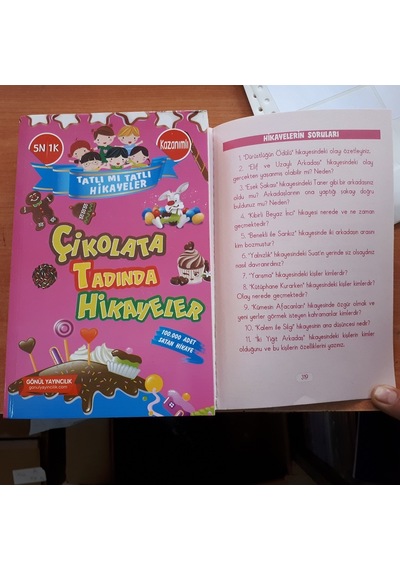 SN 1K
Kazanımlı
TATLI MI TATLI
HİKAYELER
ÇİKOLATA
TADINDA
HİKAYELER
100.000 ADET
SATAN HİKAYE
GÖNÜL YAYINCILIK
gonulyayincilik.com
HİKAYELERİN SORULARI
1. "Dürüstlüğün Ödülü" hikayesindeki olayı özetleyiniz.
2. "Elif ve Uzaylı Arkadaşı" hikayesindeki olay
gerçekten yaşanmış olabilir mi? Neden?
3. "Eşek Şakası" hikayesindeki Taner gibi bir arkadaşınız
oldu mu? Arkadaşlarının ona yaptığı şakayı doğru
buldunuz mu? Neden?
4. "Kibirli Beyaz İnci" hikayesi nerede ve ne zaman
geçmektedir?
5. "Benekli ile Sarıkız" hikayesinde iki arkadaşın arasını
kim bozmuştur?
6. "Yalnızlık" hikayesindeki Suat'ın yerinde siz olsaydınız
nasıl davranırdınız?
7. "Yarışma" hikayesindeki kişiler kimlerdir?
8. "Kütüphane Kurarken" hikayesindeki kişiler kimlerdir?
Olay nerede geçmektedir?
9. "Kümesin Afacanları" hikayesinde özgür olmak ve
yeni yerler görmek isteyen kahramanlar kimlerdir?
10. "Kalem ile Silgi" hikayesinin ana düşüncesi nedir?
11. "İki Yiğit Arkadaş" hikayesindeki kişilerin kimler
olduğunu ve bu kişilerin özelliklerini yazınız.